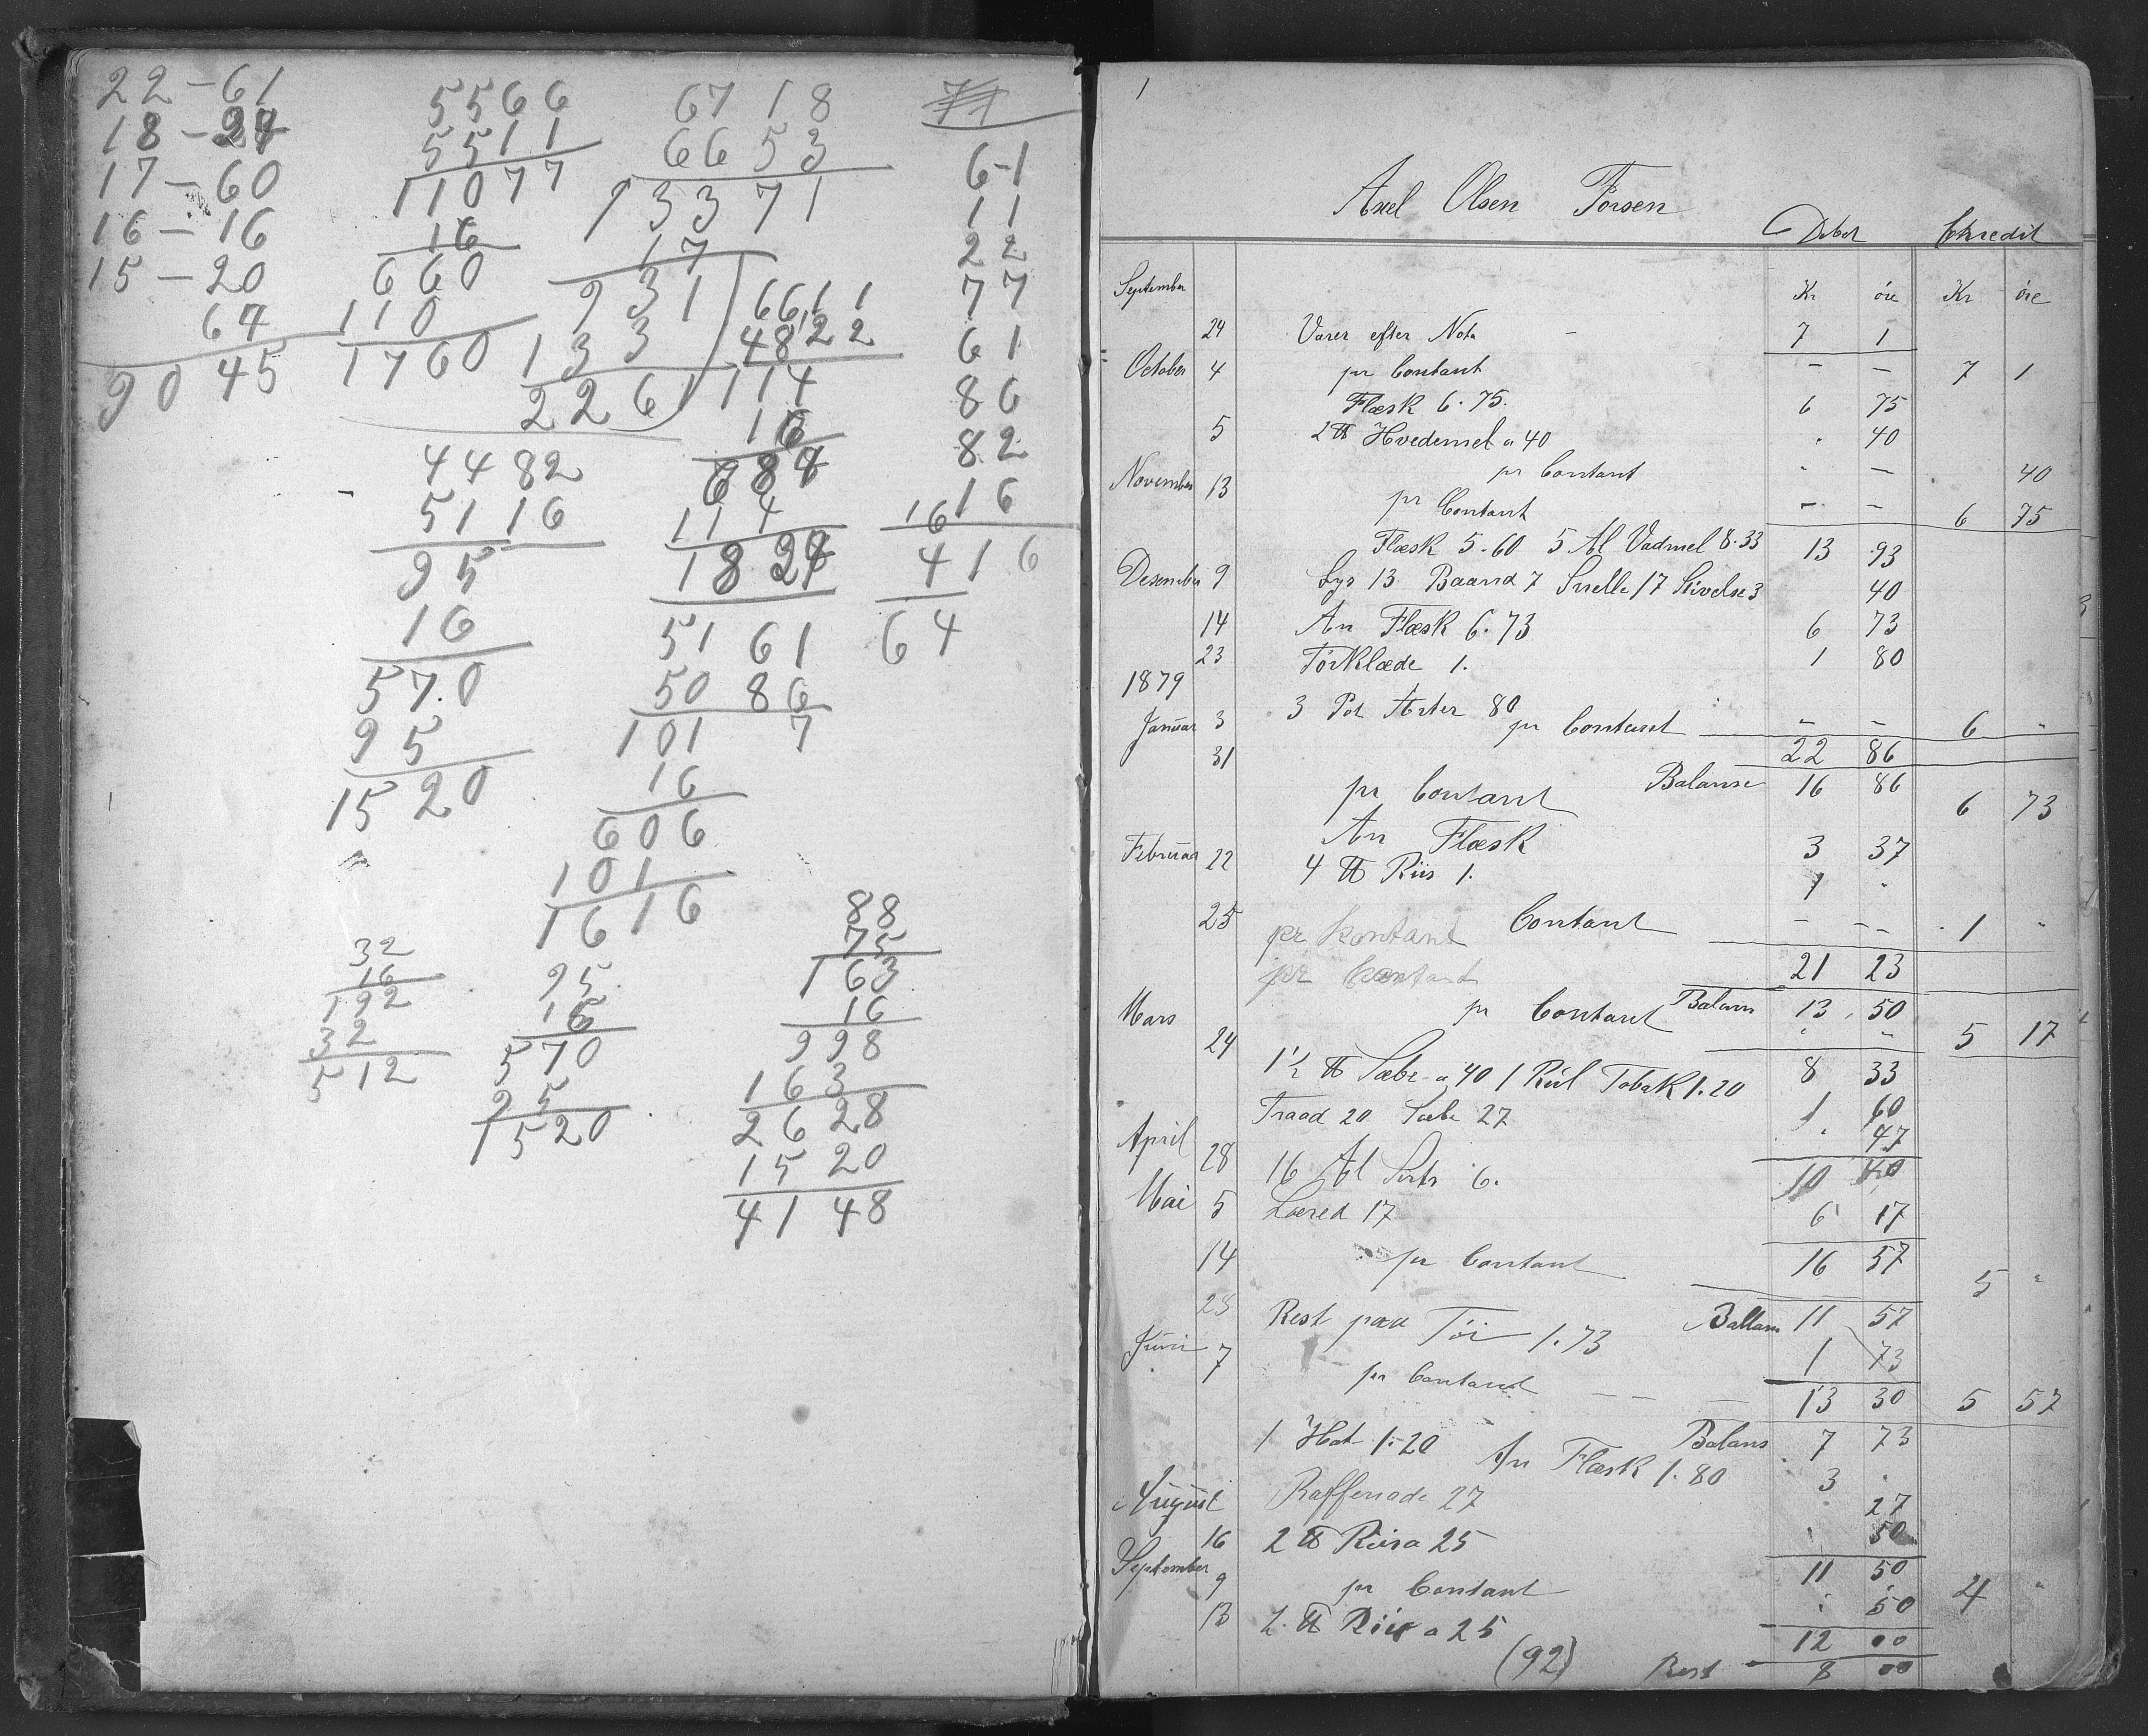 22-61
18-24
17-60
16-16
15-20
64
90 45
5566
5511
11077
16
660
110
1760
67 18
66 53
13371
17
931
133
2261
6611
4822
114
16
684
114
1824
6-1
11
22
77
61
86
82
16
16
416
64
44 82
51 16
95
16
570
95
1520
51 61
50 86
101 7
16
606
101
1616
32
16
192
32
512
95
16
570
95
1520
88
75
163
16
998
163
2628
1520
4148
1
Axel Olsen Forsen
Debet Kredit
September Kr öre Kr öre
24 Varer efter Nota 7 1
October 4 pr Contant - - 7 1
Flæsk 6.75. 6 75
5 2 ℔ Hvedemel a 40 " 40
pr Contant " - 40
November 13 pr Contant - - 6 75
Flæsk 5.60 5 Al Vadmel 8.33 13 93
Desember 9 Lys 13 Baand 7 Snelle 17 Stivelse 3 40
14 An Flæsk 6.73 6 73
23 Tørklæde 1. 1 80
1879
3 Pot Ærter 80
Januar 3 pr Contant - - 6 "
31 22 86
Balanse 16 86
pr Contant 6 73
An Flæsk 3 37
Februar 22 4 ℔ Riis 1. 1 "
25 pr Kontant Contant - - 1 "
pr Contant 21 23
Balans 13 50
Mars 24 pr Contant " - 5 17
1½ ℔ Sæbe a 40 1 Rul Tobak 1.20 8 33
1 60
Traad 20 Sæbe 27 " 47
April 28 16 Al Sirts 6. 10 40
Mai 5 Lærred 17 6 17
14 pr Contant 16 57 5 "
28 Ballans 11 57
Rest paa Tøi 1.73 1 73
Juni 7 pr Contant - - 13 30 5 57
Balans 7 73
1 Hat 1.20 An Flæsk 1.80 3 "
August Raffenade 27 27
16 2 ℔ Riis a 25 " 50
September 9 pr Contant 11 50 4 "
13 2 ℔ Riis a 25 " 50
12 00
(92) Rest 8 00